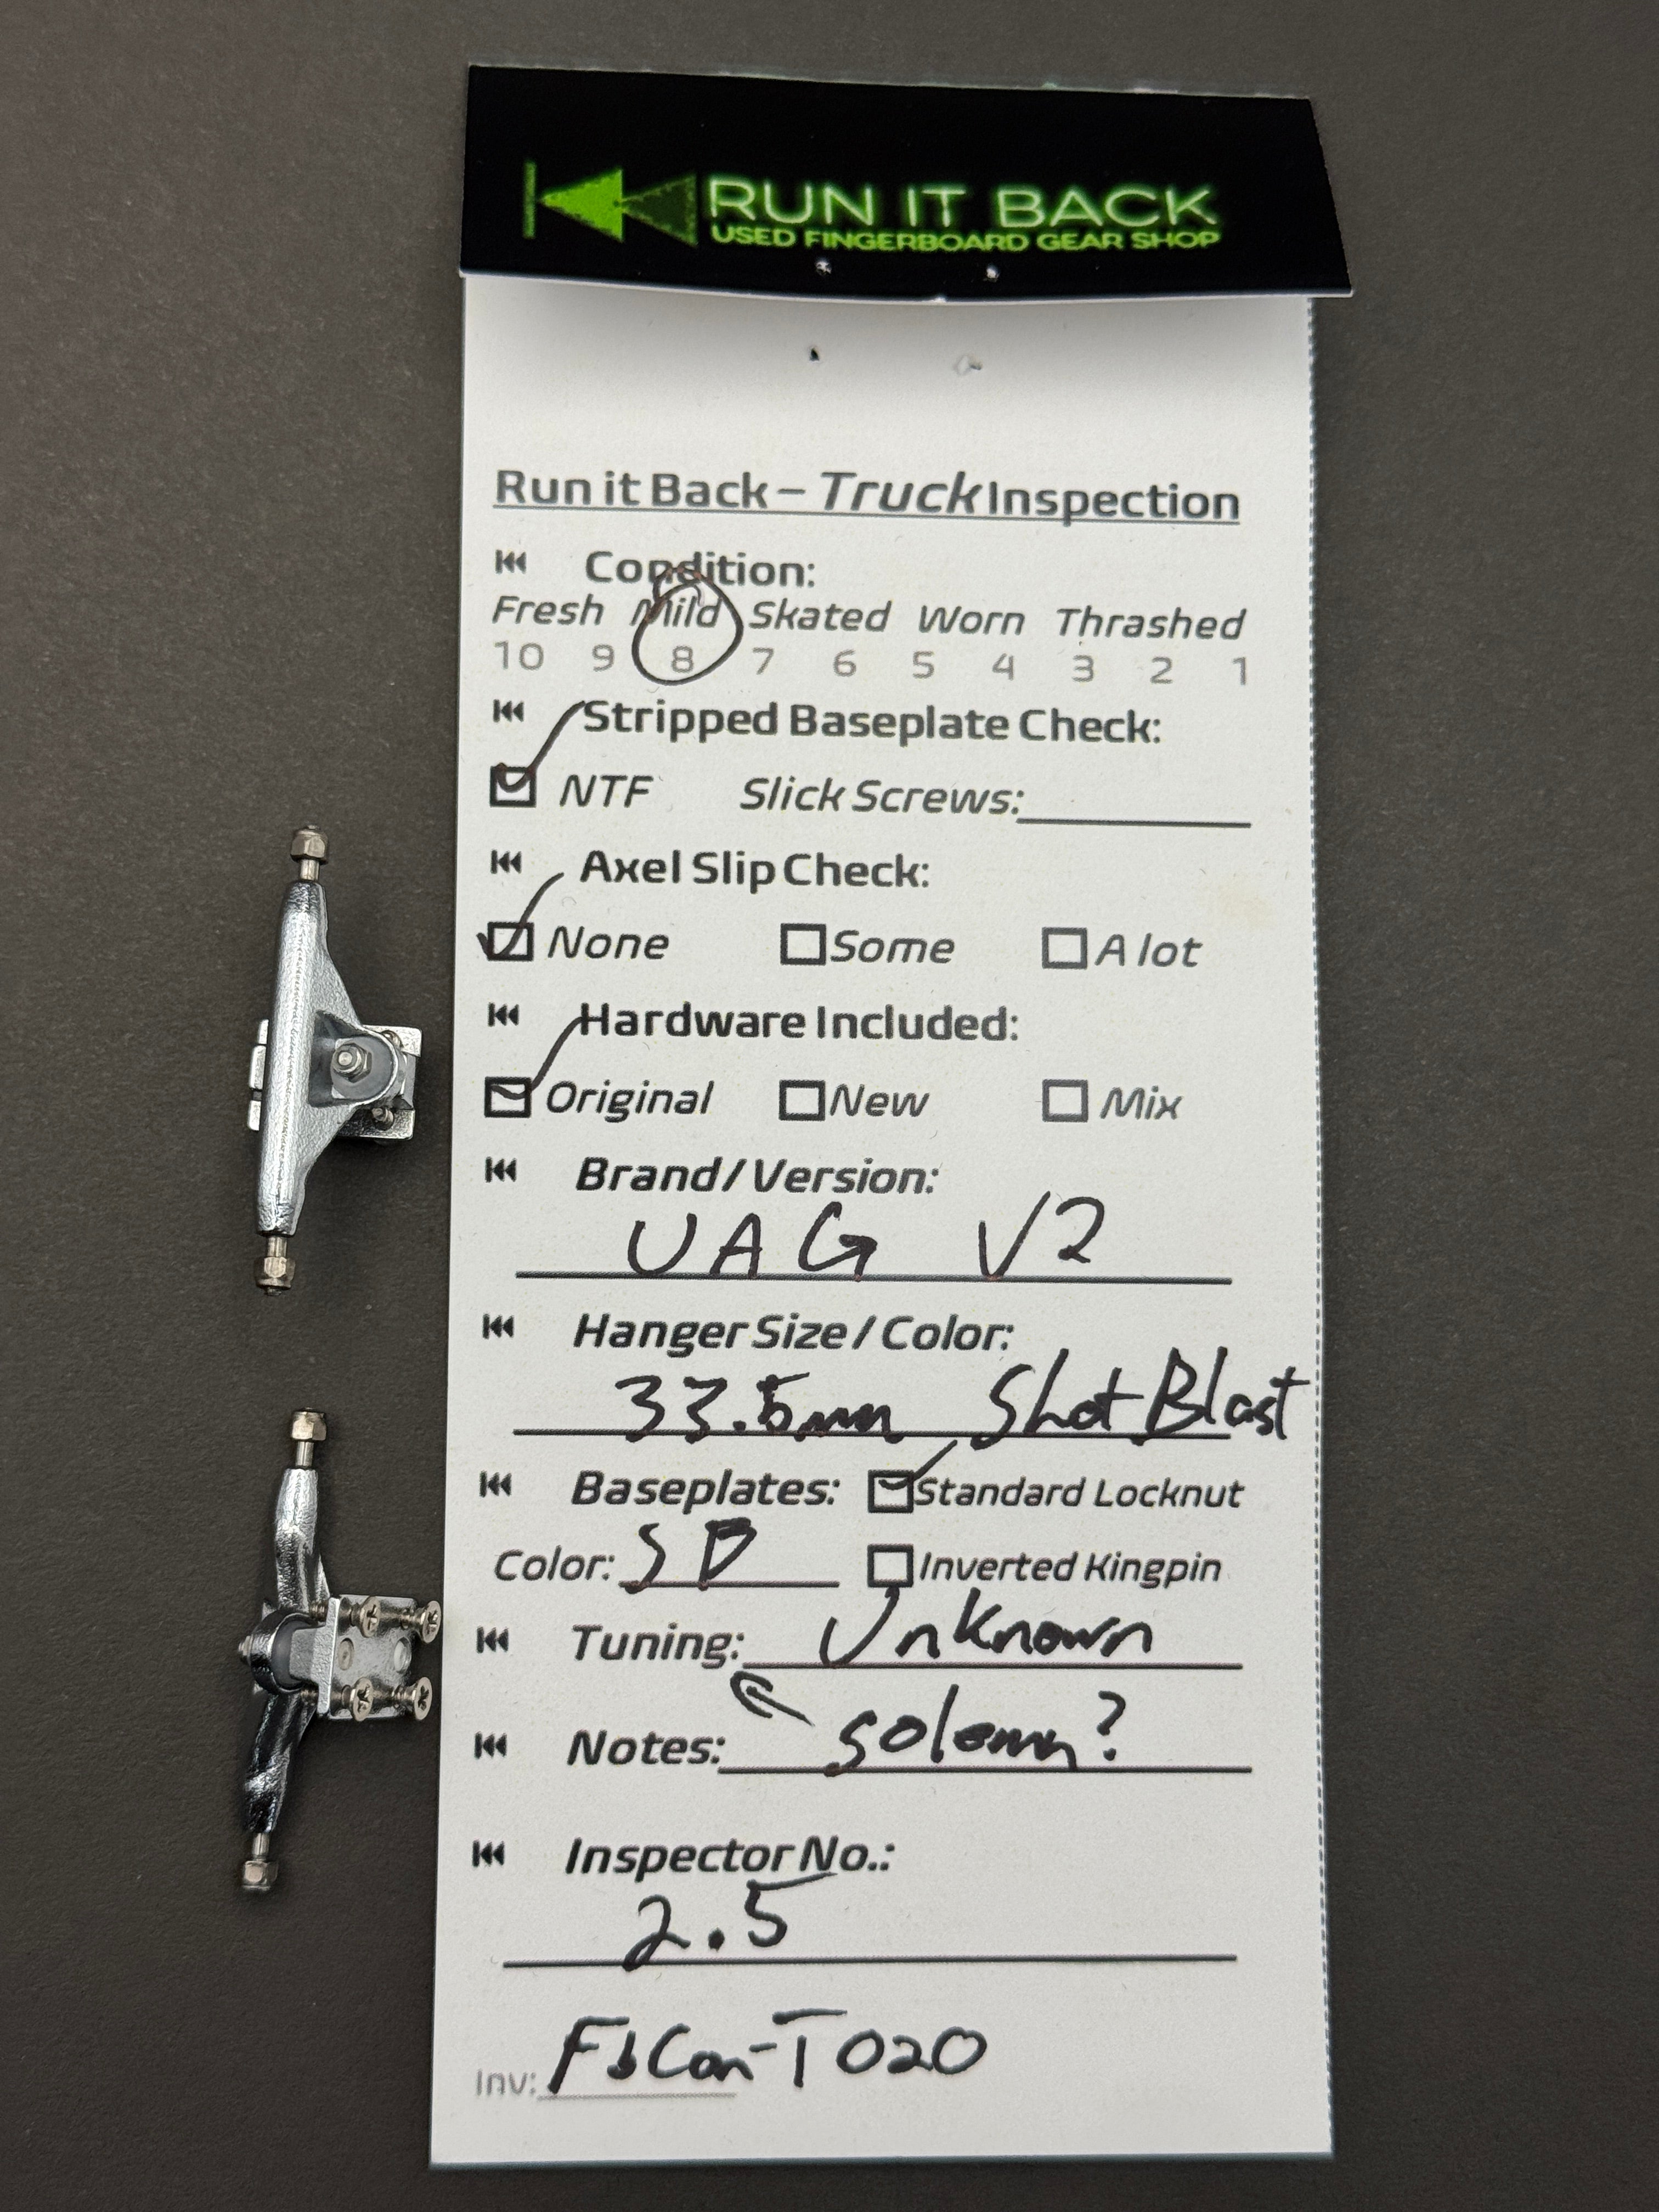 RUN IT BACK
USED FINGERBOARD GEAR SHOP
Run it Back – Truck Inspection
Condition:
Fresh Mild Skated Worn Thrashed
10 9 8 7 6 5 4 3 2 1
Stripped Baseplate Check:
NTF Slick Screws:
Axel Slip Check:
None Some A lot
Hardware Included:
Original New Mix
Brand/Version:
UAG V2
Hanger Size/Color:
33.5mm Shot Blast
Baseplates: Standard Locknut
Color: SB Inverted Kingpin
Tuning: Unknown
Notes: solemn?
Inspector No.:
2.5
Inv: FbCon-T020